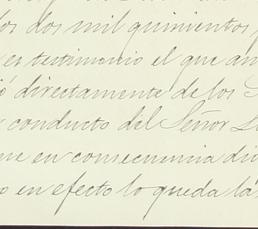 los dos mil quinientos
es testimonio el que an
ió directamente de los S
conducto del Señor
que en consecuencia di
o en efecto lo queda la